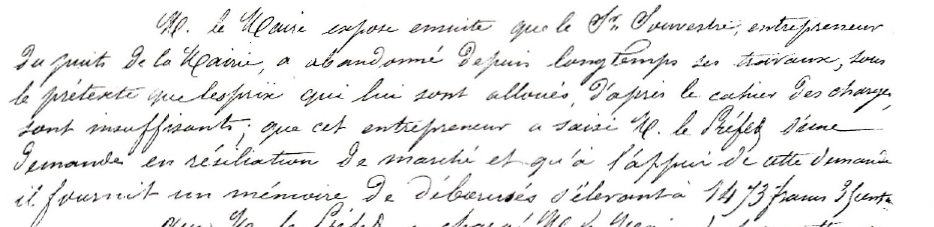 M. le Maire expose ensuite que le Sr. Souvestre, entrepreneur
du puits de la Mairie, a abandonné depuis longtemps ses travaux, sous
le prétexte que les prix qui lui sont alloués, d'après le cahier des charges,
sont insuffisants; que cet entrepreneur a saisi M. le Préfet d'une
demande en résiliation de marché et qu'à l'appui de cette demande
il fournit un mémoire de déboursés s'élevant à 1473 francs
M. le Préfet a chargé M. le Maire